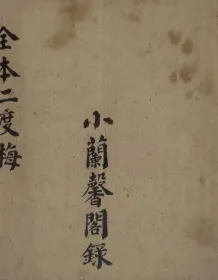 全本二度梅
小蘭馨閣錄